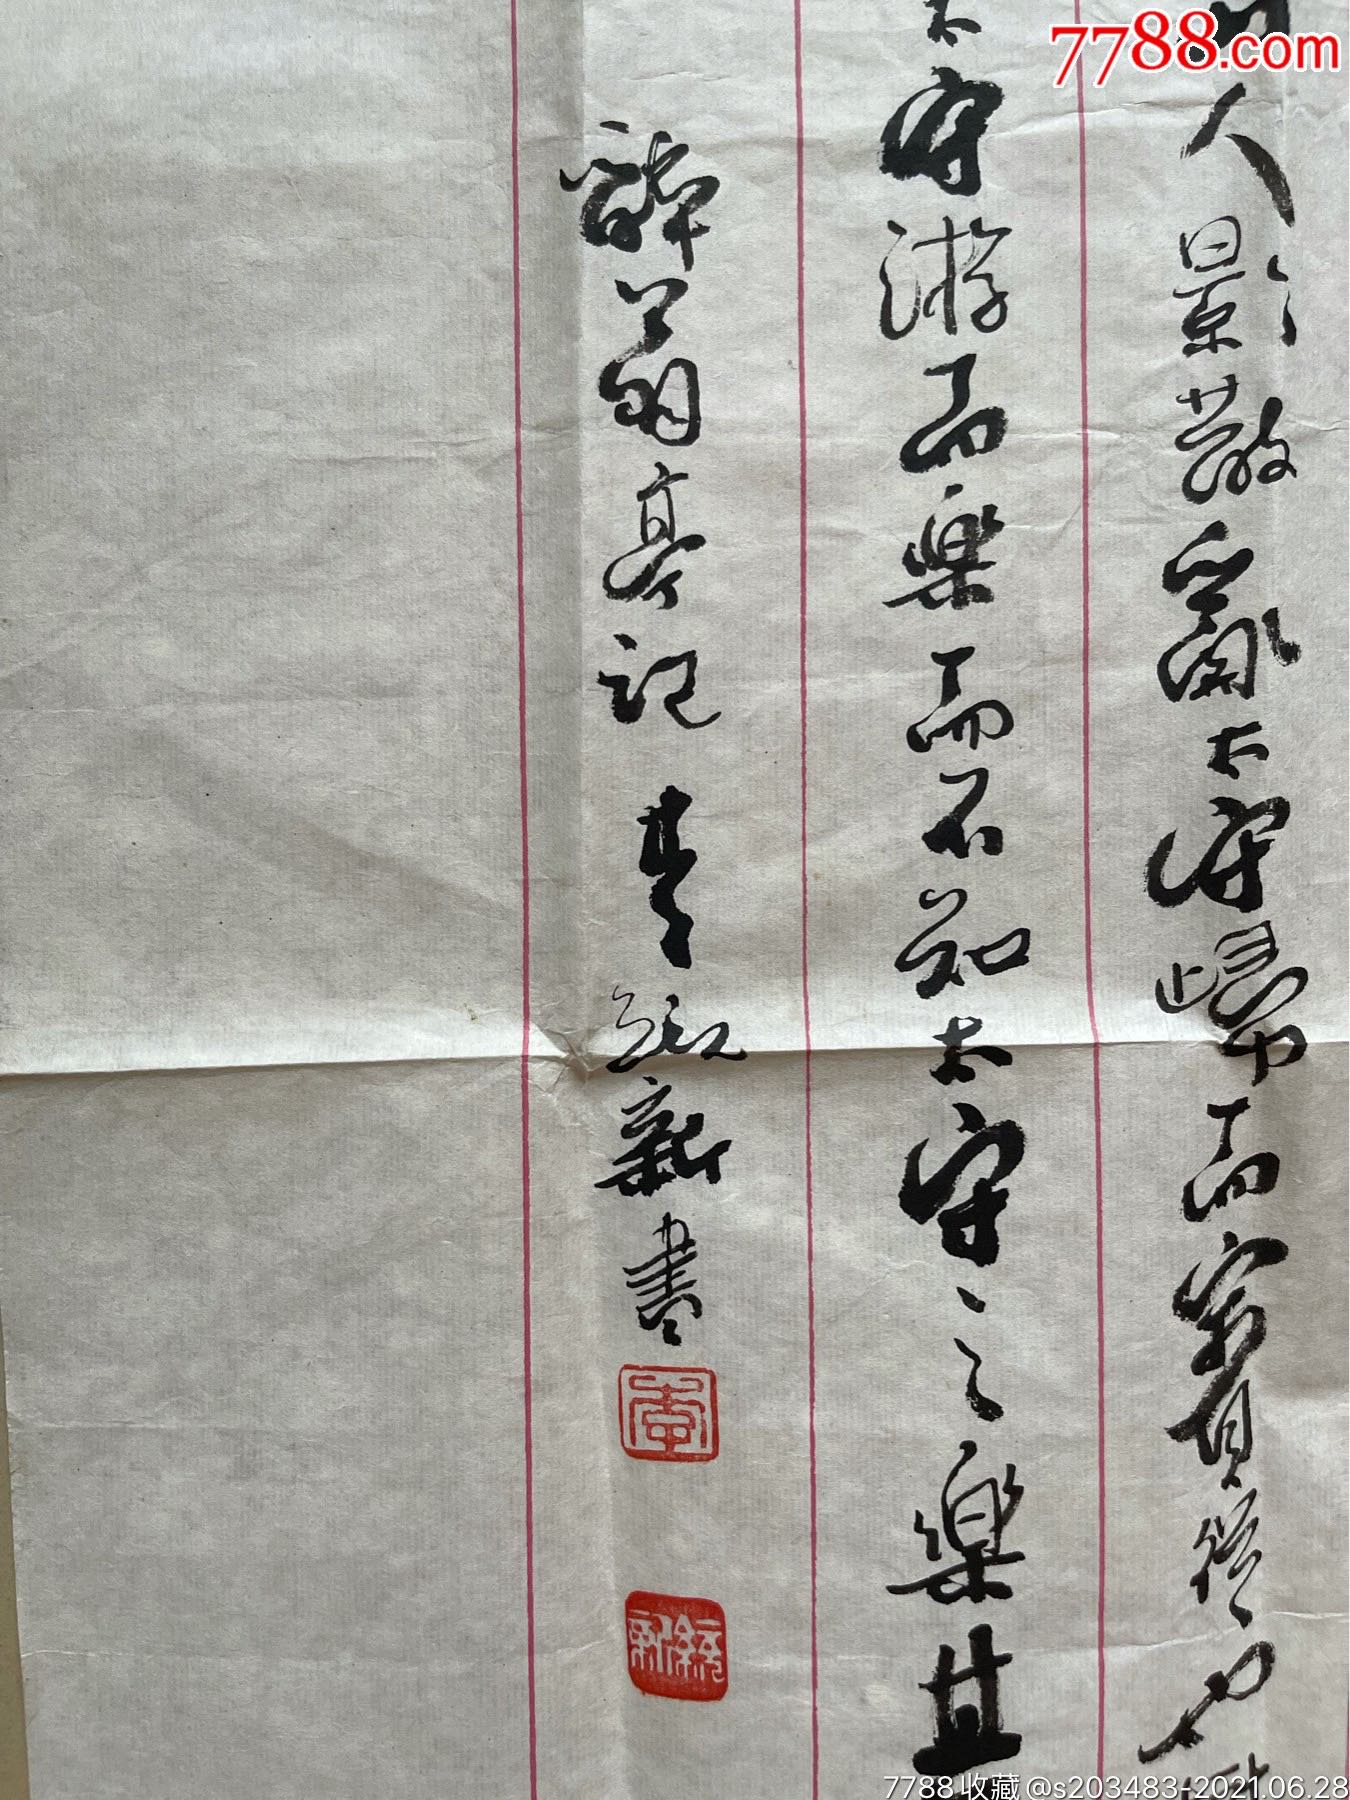 7788.com
人影散亂太守歸而賓從也
太守游而樂而不知太守之樂其
醉翁亭記 李統新書
李
統新
7788收藏@s203483-2021.06.28